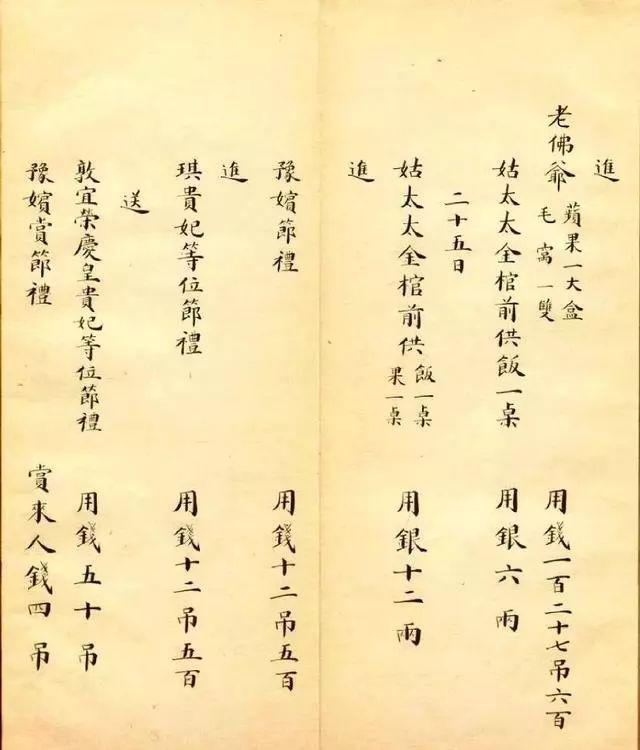 進
老佛爺 蘋果一大盒 毛窩一雙 用錢一百二十七吊六百
姑太太全棺前供飯一桌 用銀六兩
二十五日
姑太太全棺前供 飯一桌 果一桌 用銀十二兩
進
豫嬪節禮 用錢十二吊五百
進
琪貴妃等位節禮 用錢十二吊五百
送
敦宜榮慶皇貴妃等位節禮 用錢五十吊
豫嬪賞節禮 賞來人錢四吊